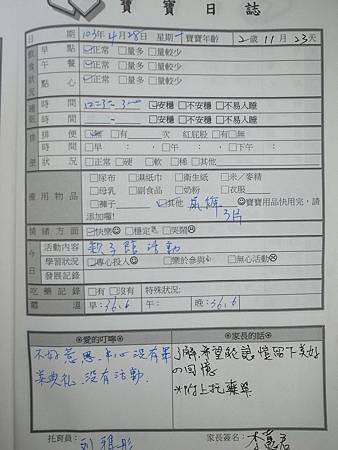 寶寶日誌
日期 103年4月28日 星期一 寶寶年齡 2歲11月23天
飲食狀況
早點 ☑正常 □量多 □量較少
午餐 ☑正常 □量多 □量較少
點心 ☑正常 □量多 □量較少
睡眠
時間 ☑安穩 □不安穩 □不易入睡
時間 ~ □安穩 □不安穩 □不易入睡
排便狀況
排便 ☑無 □有 次 紅屁股 □有 □無
時間 □早: □午: □下午:
便狀 □正常 □硬 □軟 □稀 □其他
需用物品 □尿布 □濕紙巾 □衛生紙 □米/麥精
□母乳 □副食品 □奶粉 □衣服
□褲子 ☑其他 ☺寶寶用品快用完,請
添加喔! 3片
情緒方面 ☑快樂☺ □穩定 □哭鬧
今日
活動內容 親子館活動
學習狀況 ☑專心投入☺ □樂於參與 □無心活動
發展記錄
吃藥記錄 □有 □沒有 特殊狀況:
體溫 早:36.6 午: 晚:36.6
❤愛的叮嚀❤
不好意思,中心沒有畢
業典禮,沒有活動.
❤家長的話❤
了解,希望能讓憶留下美好
の回憶
*附上托藥單
托育員: 劉雅彤
家長簽名: